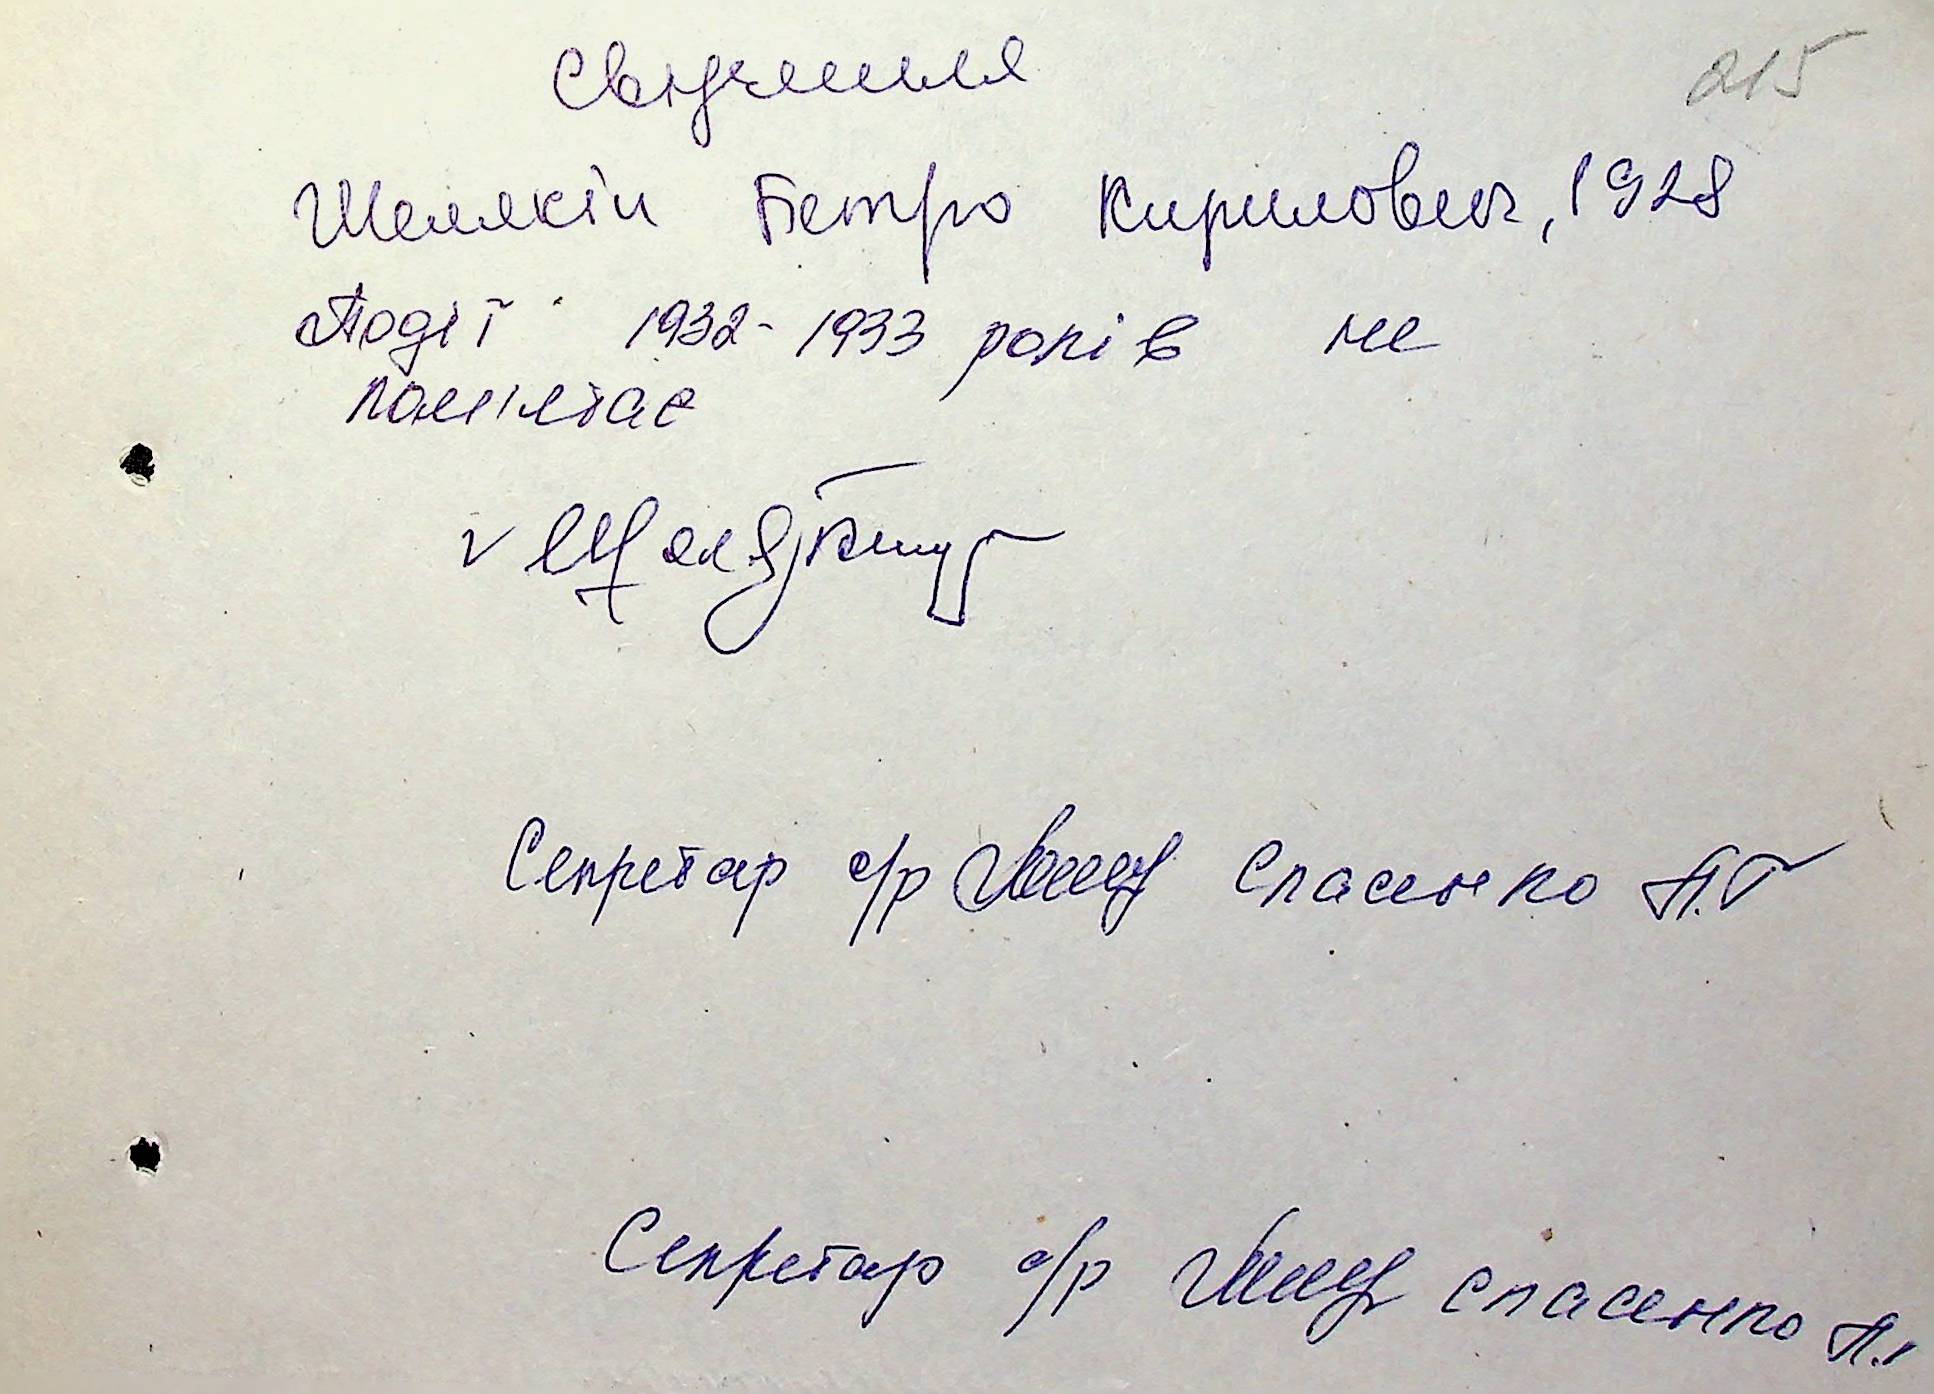 Свідчення
215
Шелякін Петро Кирилович, 1928
Події 1932-1933 років не
пам'ятає
Секретар с/р Спасенко П.Г
Секретар с/р Спасенко П.